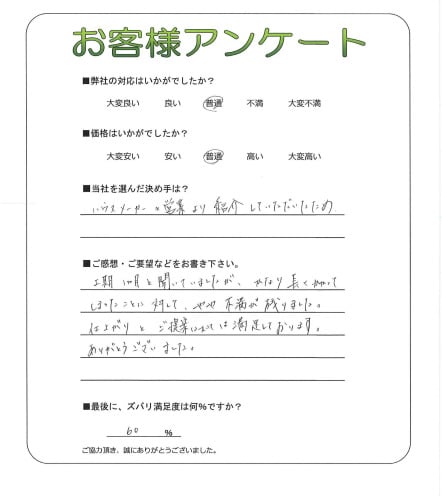 お客様アンケート
■弊社の対応はいかがでしたか?
大変良い 良い 普通 不満 大変不満
■価格はいかがでしたか?
大変安い 安い 普通 高い 大変高い
■当社を選んだ決め手は?
ハウスメーカーの営業より紹介していただいたため
■ご感想・ご要望などをお書き下さい。
工期 1ヶ月と聞いていましたが、かなり長くかかって
しまったことに対して、やや不満が残りました。
仕上がりとご提案については満足しております。
ありがとうございました。
■最後に、ズバリ満足度は何%ですか?
60 %
ご協力頂き、誠にありがとうございました。